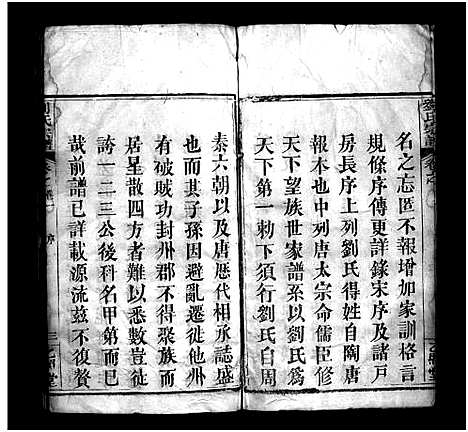 名之志匿不報增加家訓格言
規條序傳更詳錄宋序及諸戸
房長序上列劉氏得姓自陶唐
也中列唐太宗命儒臣修
天下望族世家譜系以劉氏爲
天下第一勅下須行劉氏自周
秦六朝以及唐歷代相承誌盛
也而其子孫因避亂遷徙他州
有破賊功封州郡不得聚族而
居星散四方者難以悉數豈徒
誇一二三公後科名甲第而已
哉前譜已詳載源流茲不復贅
序